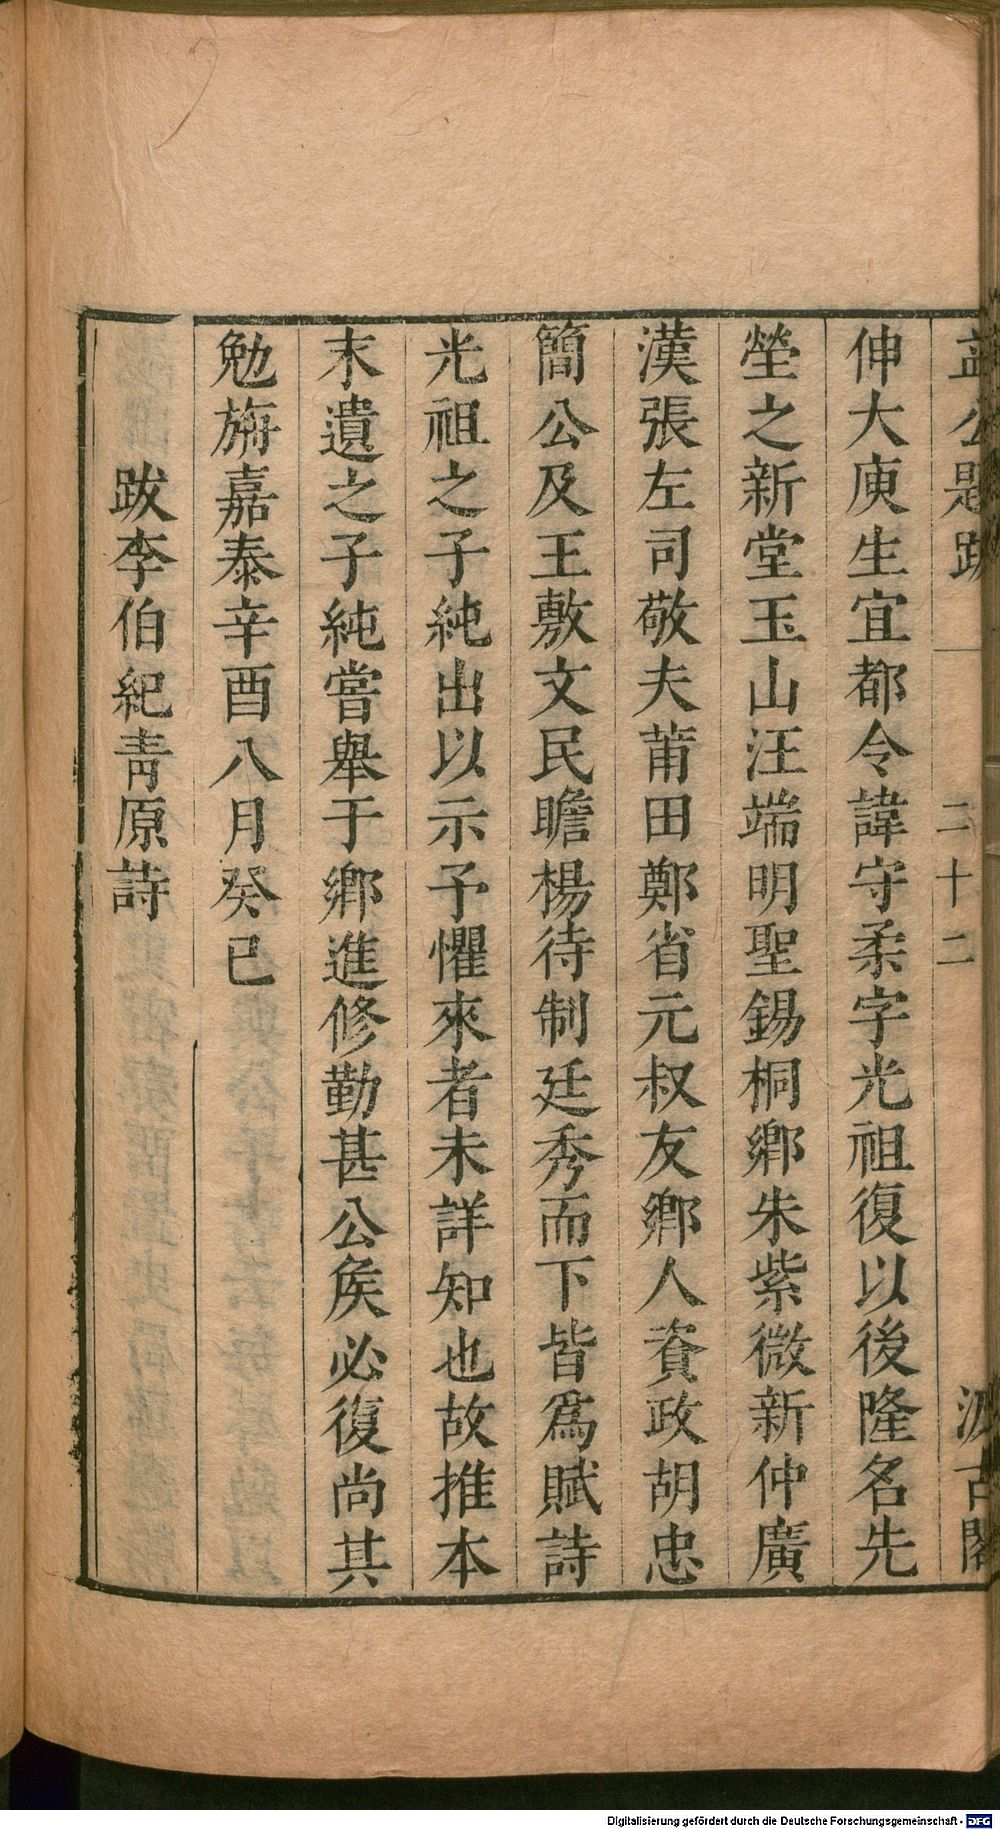 益公題跋 二十二 汲古閣
伸大庾生宜都令諱守柔字光祖復以後隆名先
塋之新堂玉山汪端明聖錫桐鄉朱紫微新仲廣
漢張左司敬夫莆田鄭省元叔友鄉人資政胡忠
簡公及王敷文民瞻楊待制廷秀而下皆爲賦詩
光祖之子純出以示予懼來者未詳知也故推本
末遺之子純嘗舉于鄉進修勤甚公矦必復尚其
勉旃嘉泰辛酉八月癸巳
跋李伯紀靑原詩
Digitalisierung gefördert durch die Deutsche Forschungsgemeinschaft - DFG